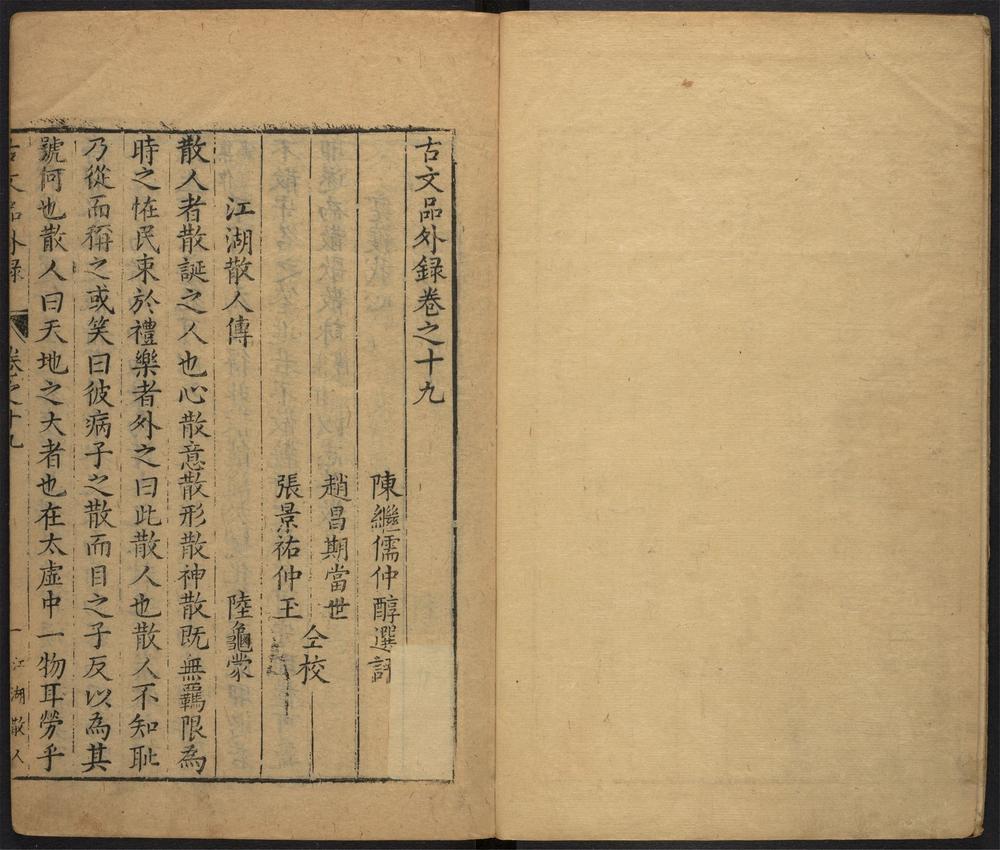 古文品外録卷之十九
陳繼儒仲醇選評
趙昌期當世
張景祐仲玉
仝校
江湖散人傳
陸龜蒙
散人者散誕之人也心散意散形散神散既無羈限為
時之恠民束於禮樂者外之曰此散人也散人不知耻
乃從而稱之或笑曰彼病子之散而目之子反以為其
號何也散人曰天地之大者也在太虚中一物耳勞乎
古文品外録
卷之十九
一
江湖散人